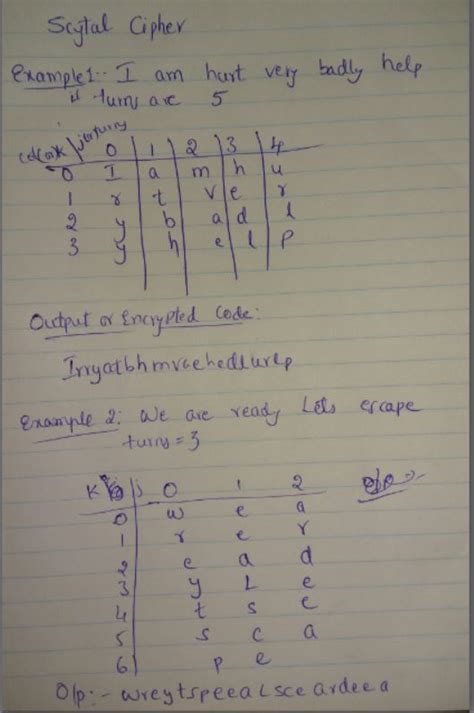 Scytal Cipher
Example1:- I am hurt very badly help
if turns are 5
j(turns)
0 1 2 3 4
0 I a m h u
1 r t v e r
2 y b a d l
3 y h e l p
Output or Encrypted Code:
Irryatbhmvaehedlurlp
Example 2: We are ready Lets escape
turns = 3
K j 0 1 2
0 w e a
1 r e r
2 e a d
3 y L e
4 t s e
5 s c a
6 p e
O/p:- wreytspeealsceardeea